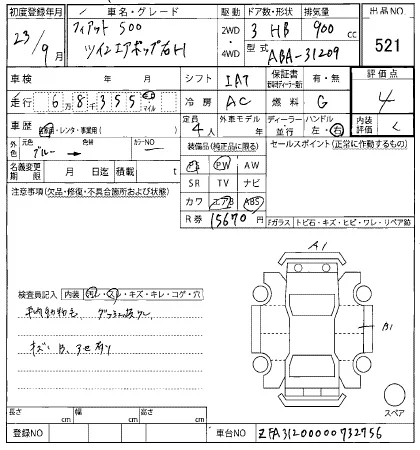 初度登録年月 車名・グレード 駆動 ドア数・形状 排気量 出品NO
23/9月 フィアット 500 2WD 3 HB 900cc 521
ツインエアポップ 右H 4WD 型式 ABA-31209
車検 年 月 シフト IAT 保証書 有・無 評価点
走行 6万8千355 km マイル 冷房 AC 燃料 G 4
車歴 自家用・レンタ・事業用( ) 定員 4人 外車モデル 年 ディーラー 並行 ハンドル 左・右 内装評価 C
外色 元色 ブルー 色替 カラーNO 装備品(純正品に限る) セールスポイント(正常に作動するもの)
名義変更期限 月 日迄 積載 t PS PW AW
注意事項(欠品・修復・不具合箇所および状態) SR TV ナビ
カワ エアB ABS
R券 15670円
Fガラス トビ石・キズ・ヒビ・ワレ・リペア跡
A1
検査員記入 内装 汚レ・スレ・キズ・キレ・コゲ・穴
B1
キズ B、アセ有り
スペア
長さ cm 幅 cm 高さ cm
登録NO 車台NO ZFA31200000732756